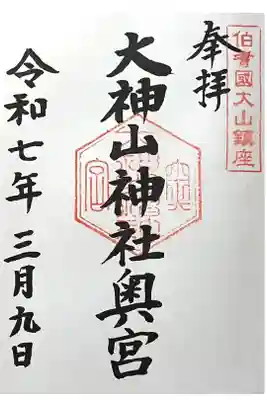 伯耆國大山鎮座
奉拝
大神山神社奥宮
令和七年三月九日